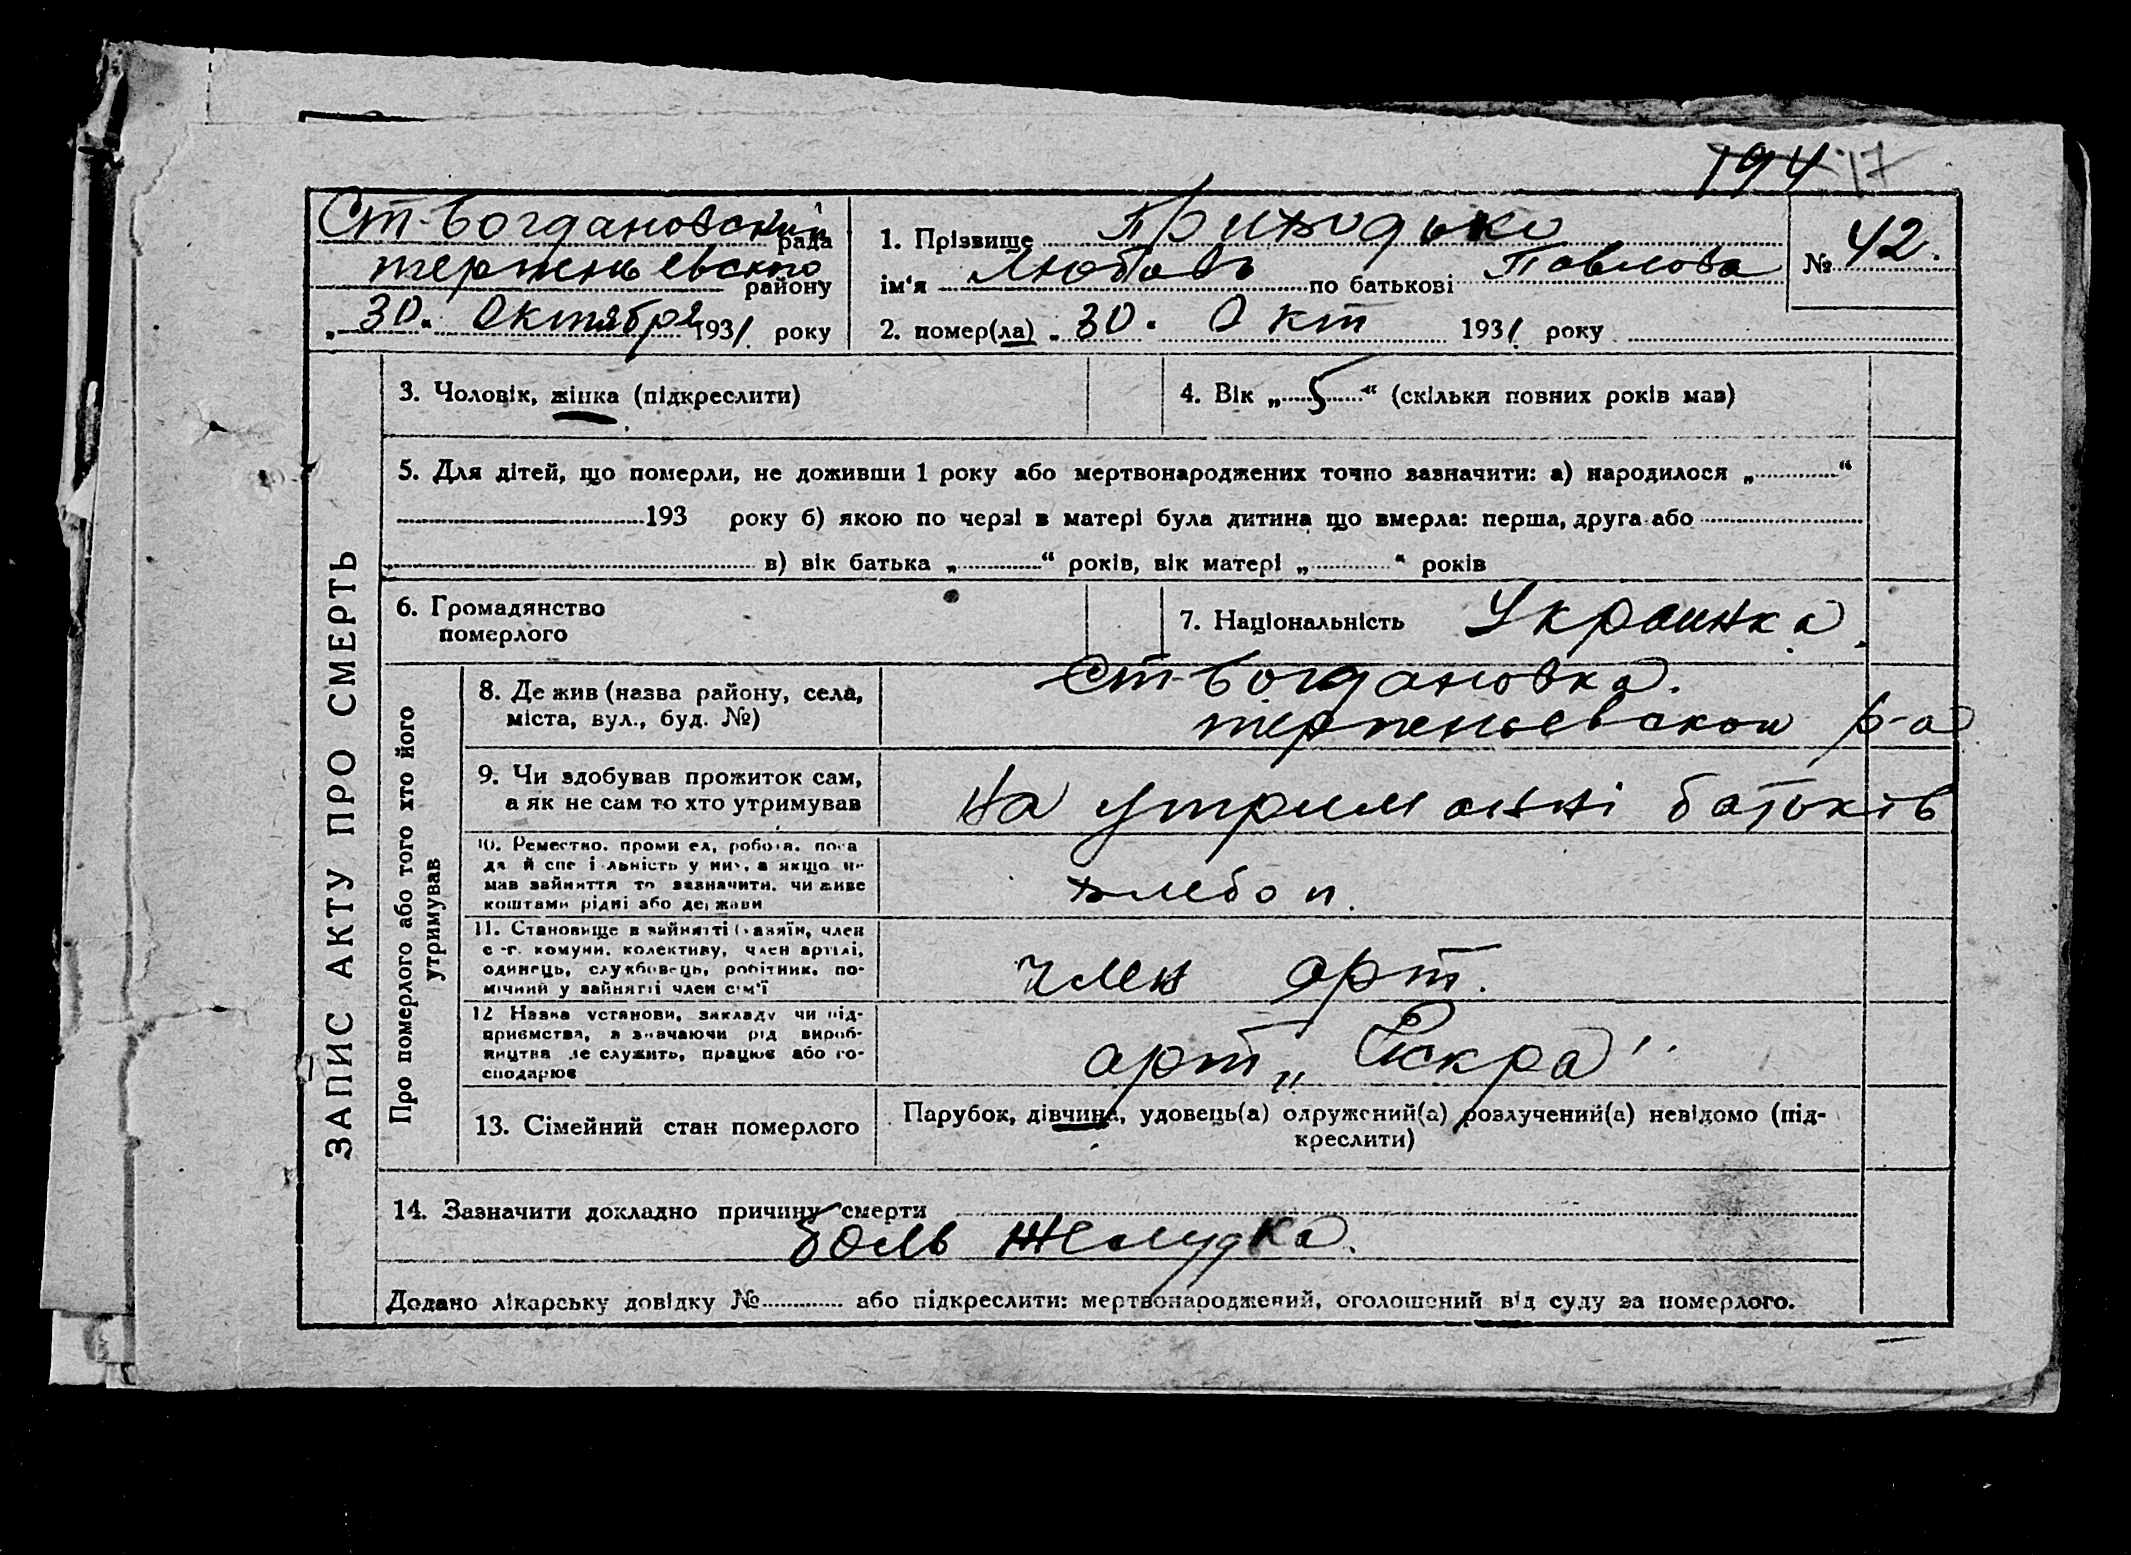 194 17
Ст-Богдановский рада
терпеньевского району
„30„ Октября 1931 року
1. Прізвище Приходько
ім'я Любовь по батькові Павлова
№ 42.
2. помер(ла) „30. Окт 1931 року
ЗАПИС АКТУ ПРО СМЕРТЬ
3. Чоловік, жінка (підкреслити)
4. Вік „5“ (скільки повних років мав)
5. Для дітей, що померли, не доживши 1 року або мертвонароджених точно зазначити: а) народилося „ “
193 року б) якою по черзі в матері була дитина що вмерла: перша, друга або
в) вік батька „ “ років, вік матері „ “ років
6. Громадянство
померлого
7. Національність Украинка
Про померлого або того хто його
утримував
8. Де жив (назва району, села,
міста, вул., буд. №)
Ст-Богдановка.
терпеньевской р-а
9. Чи здобував прожиток сам,
а як не сам то хто утримував
На утриманні батьків
10. Ремество, промисел, робота, поса
да й спеціальність у ній, а якщо не
мав зайняття то зазначити, чи живе
коштами рідні або держави
хлебоп.
11. Становище в зайнятті (хазяїн, член
с-г. комуни, колективу, член артілі,
одинець, службовець, робітник, по-
мічний у зайнятті член сім'ї
член арт.
12 Назва установи, закладу чи під-
приємства, зазначаючи рід вироб-
ництва де служить, працює або го-
сподарює
арт „Искра"
13. Сімейний стан померлого
Парубок, дівчина, удовець(а) одружений(а) розлучений(а) невідомо (під-
креслити)
14. Зазначити докладно причину смерти
боль желудка.
Додано лікарську довідку № або підкреслити: мертвонароджений, оголошений від суду за померлого.